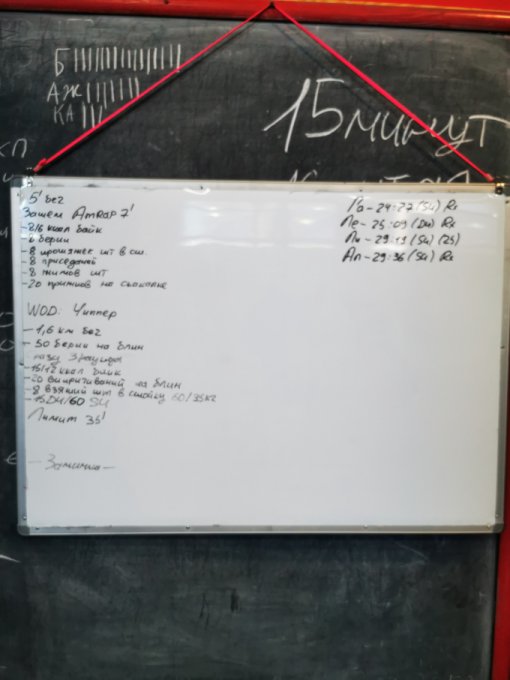 Б
АЖ
КА
15 минут
КП
5' бег
Затем AmRap 7'
- 8/6 ккал байк
- 6 берпи
- 8 протяжек шт в ст.
- 8 приседаний
- 8 жимов шт
- 20 прыжков на скакалке
WOD: Чиппер
- 1,6 км бег
- 50 берпи на блин
- 15/12 ккал байк
- 20 выпрыгиваний на блин
- 8 взятий шт в стойку 60/35кг
- 15 DU/60 SU
Лимит 35'
- Заминка -
Га - 24:27 (SU) Rx
Ле - 25:09 (DU) Rx
Ан - 29:36 (SU) Rx